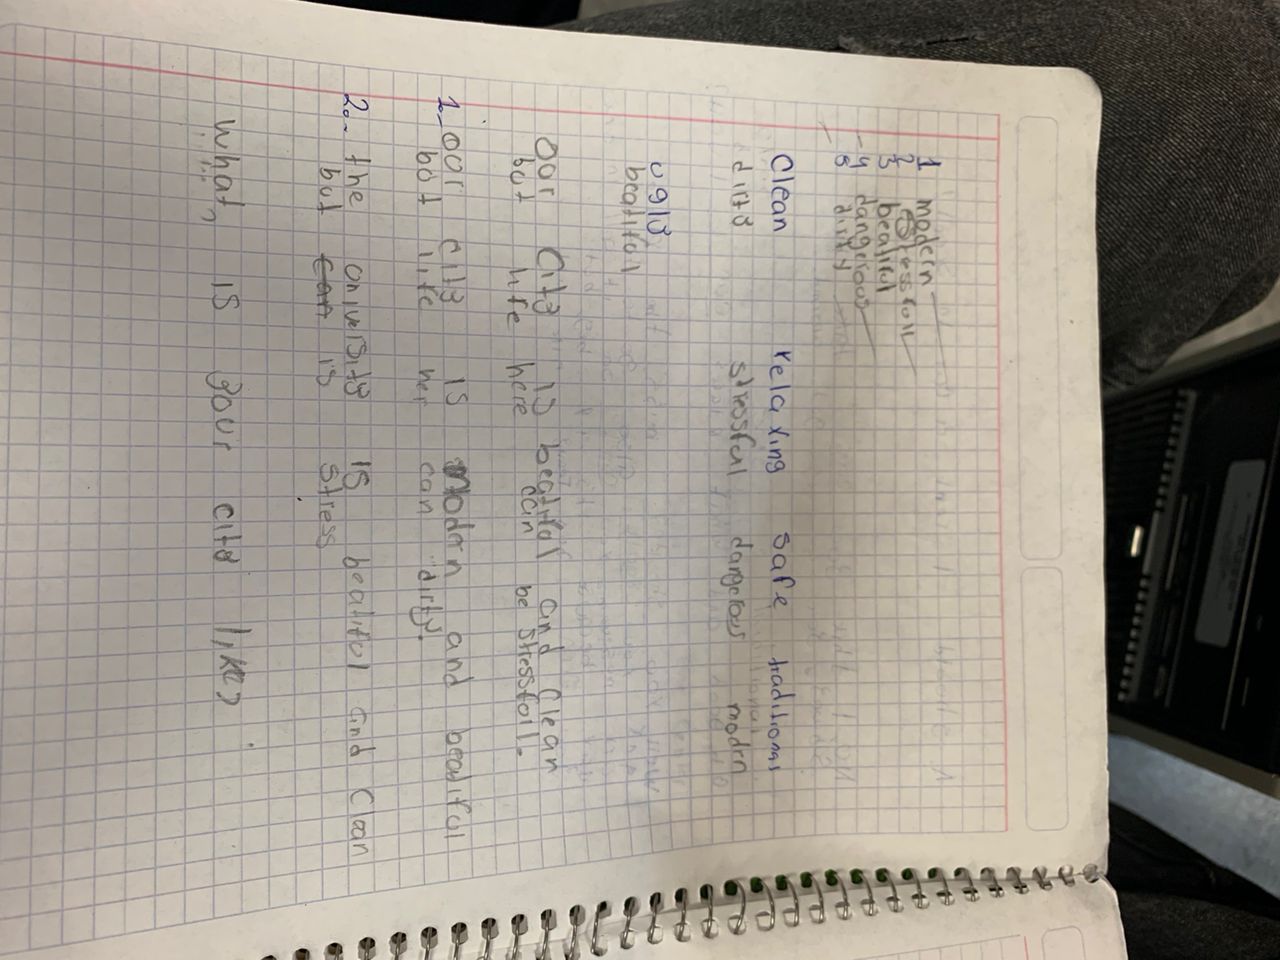 1 modern
2 stressfull
3 beatirul
- 4 dangerous
- 5 dirty
Clean relaxing safe traditionas
dirty stressful dangerous modrn
ugly
beatifol
Oor City is beatifol and Clean
but life here can be stressfoll.
1- oor city is Modern and beatiful
but life her can dirty.
2.- the oniversity is beatiful and Clean
but can is stress
what, is your city like)